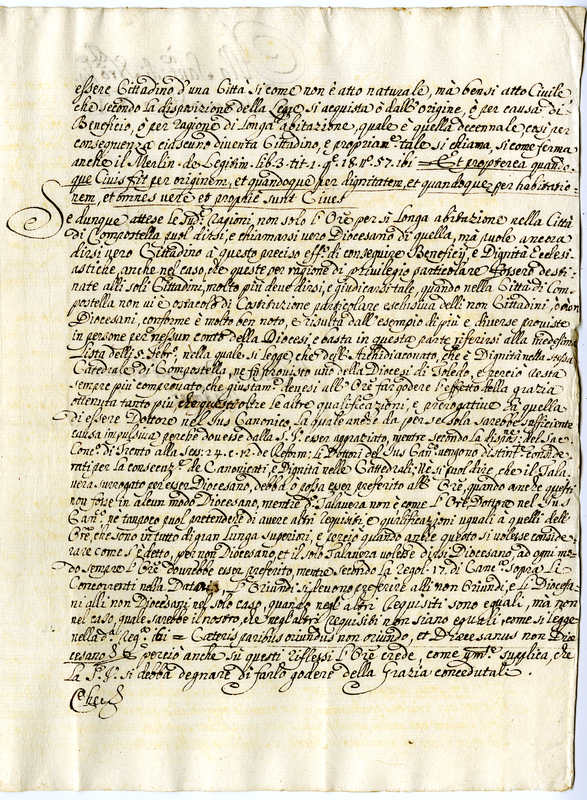 essere Cittadino d'una Città si come non è atto naturale, mà bensi atto Civile
che secondo la disposizione della Lege si acquista ò dall'origine, ò per causa di
Beneficio, ò per ragione di longa abitazione, quale è quella decennale così per
conseguenza ciascuno diventa Cittadino, e propriam.te tale si chiama, si come ferma
anche il Merlin. de Legitim. lib. 3. tit. 1. q. 18. n. 57. ibi = Et propterea quando-
que Civis fit per originem, et quandoque per dignitatem, et quandoque per habitatio-
nem, et omnes vere et proprie sunt Cives
Se dunque attese le sud.e Ragioni, non solo l'Ore per si longa abitazione nella Città
di Compostella puol dirsi, e chiamarsi vero Diocesano di quella, mà puole ancora
dirsi vero Cittadino à questo preciso eff.o di conseguire Beneficij, e Dignità Ecclesi-
astiche, anche nel caso, che queste per ragione di privilegio particolare fossero desti-
nate alli soli Cittadini, molto più deve dirsi, e giudicarsi tale, quando nella Città di Com-
postella non vi è ostacolo di Costituzione particolare esclusiva delli non Cittadini, ò non
Diocesani, conforme è molto ben noto, e risulta dall'esempio di più e diverse proviste
in persone per nessun conto della Diocesi, e basta in questa parte riferirsi alla medesima
Lista delli 5. Febr.o, nella quale si legge, che dell'Archidiaconato, che è Dignità nella stessa
Catedrale di Compostella, ne fù provisto uno della Diocesi di Toledo, e perciò resta
sempre più comprovato, che giustam.te devesi all'Ore far godere l'effetto della grazia
ottenuta tanto più che questi oltre le altre qualificazioni, e prerogative hà quella
di essere Dottore nell'Jus Canonico, la quale anche da per se sola sarebbe sufficiente
causa impulsiva perche dovesse dalla S.V. esser aggraziato, mentre secondo la dispos.e del Sac.
Conc.o di Trento alla Sess. 24. c. 12. de Reform: li Dottori del Jus Can.co vengono distint.e conside-
rati per la consecuz.e de Canonicati, e Dignità nelle Catedrali; Nè si puol dire, che il Tala-
vera surrogato per esser Diocesano, debba ò possa esser preferito all'Ore, quando anche questi
non fosse in alcun modo Diocesano, mentre d.o Talavera non è come l'Ore Dottore nel Jus
Can.co, ne tanpoco puol pretendere di avere altri requisiti, e qualificazioni uguali à quelli dell'
Ore, che sono in tutto di gran lunga superiori, e perciò quando anche questo si volesse conside-
rare come s'è detto, per non Diocesano, et il solo Talavera volesse dirsi Diocesano, ad ogni mo-
do sempre l'Ore dovrebbe esser preferito, mentre secondo la Regol. 17. di Canc.a sopra li
Concorrenti nella Data li Oriundi si devono preferire alli non Oriundi, e li Diocesa-
ni alli non Diocesani nel solo caso, quando negl'altri Requisiti sono equali, mà non
nel caso, quale sarebbe il nostro, che negl'altri Requisiti non siano equali, come si legge
nella d.a Reg.a ibi = Cæteris paribus oriundus non oriundo, et Diœcesanus non Diœ-
cesano & E perciò anche sù questi riflessi l'Ore crede, come um.te supplica, che
la S.V. si debba degnare di farlo godere della Grazia concedutali.
Che &